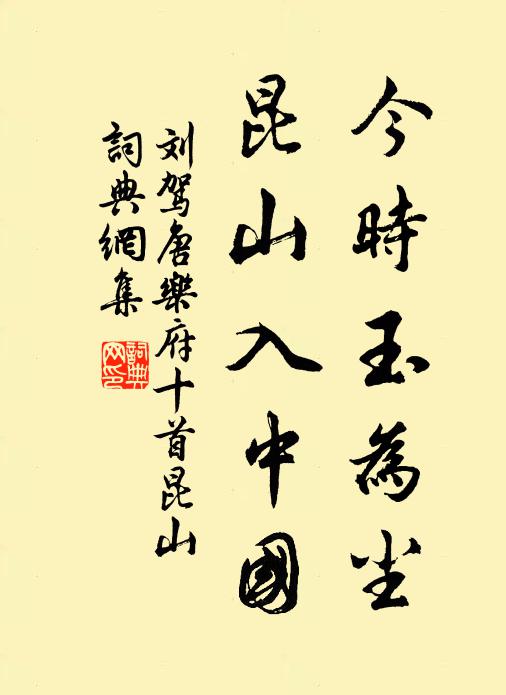 今時玉為尘
昆山入中國
刘驾唐樂府十首昆山
詞典網集
詞典
网印